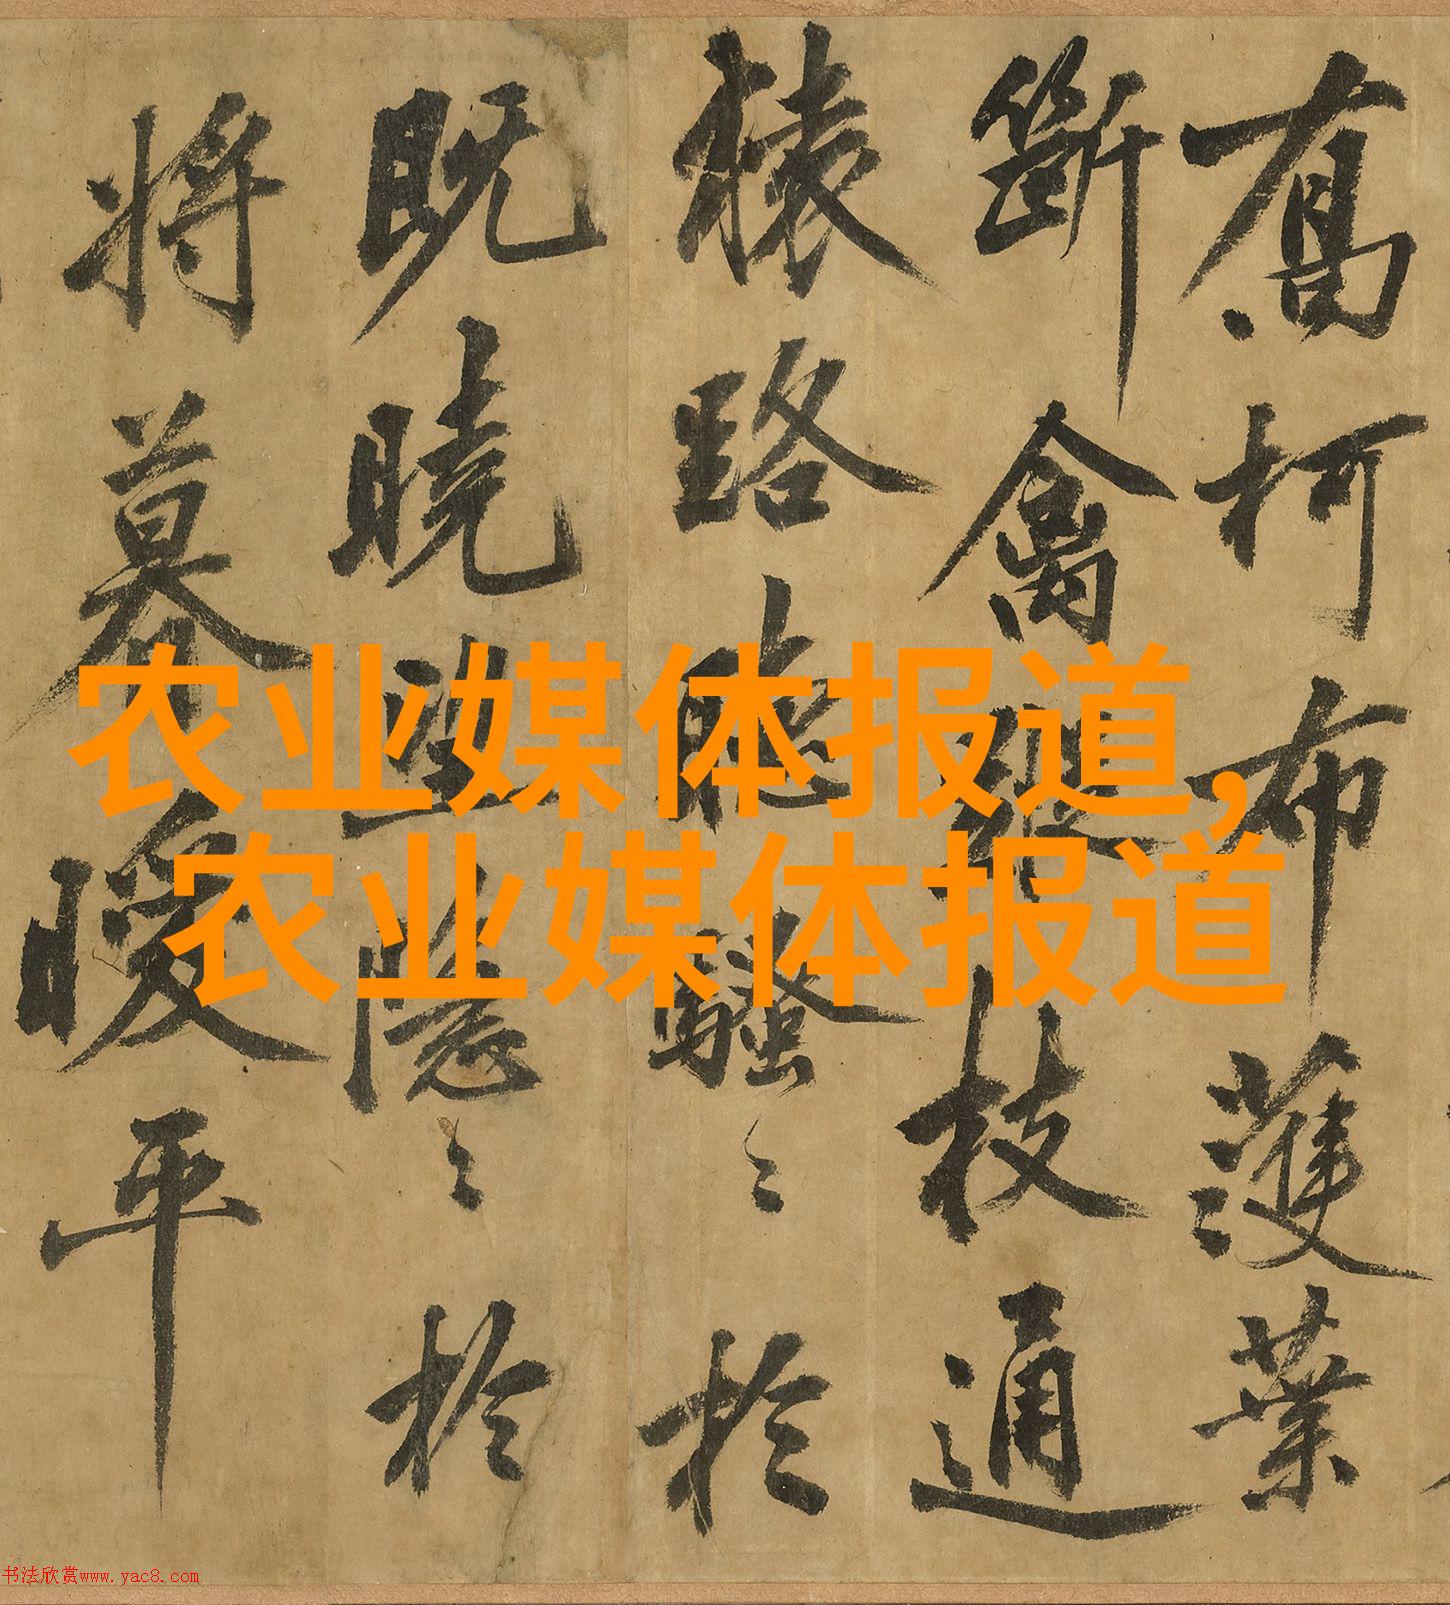 柯布濩葉
斷禽枝通
猿路聽騷〻於
既曉望隱〻於
將暮暖平
农业媒体报道,
农业媒体报道
书法欣赏www.yac8.com